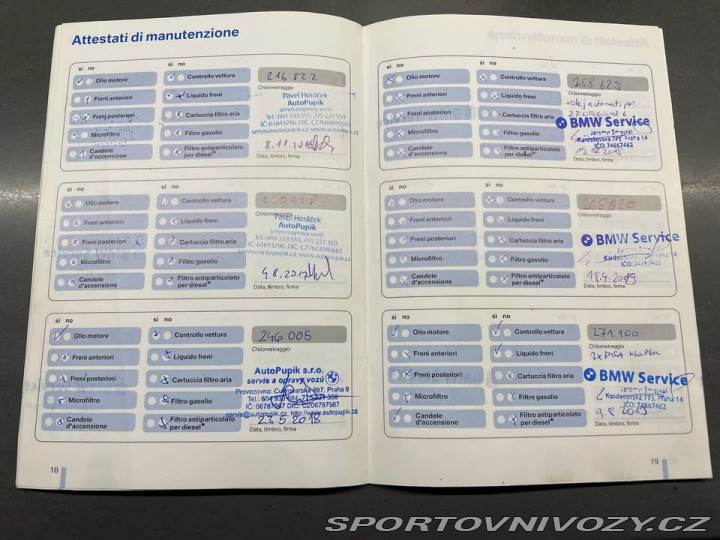 Attestati di manutenzione
sì no
Olio motore
Freni anteriori
Freni posteriori
Microfiltro
Candele
d'accensione
sì no
Controllo vettura
Liquido freni
Cartuccia filtro aria
Filtro gasolio
Filtro antiparticolato
per diesel*
216 822
Chilometraggio
Pavel Horáček
AutoPupik
servis a opravy vozů
Tel.: 604 333 555, 775 221 359
8.11.2016
Data, timbro, firma
sì no
Olio motore
Freni anteriori
Freni posteriori
Microfiltro
Candele
d'accensione
sì no
Controllo vettura
Liquido freni
Cartuccia filtro aria
Filtro gasolio
Filtro antiparticolato
per diesel*
Chilometraggio
Pavel Horáček
AutoPupik
servis a opravy vozů
Tel.: 604 333 555, 775 221 359
4.8.2017
Data, timbro, firma
sì no
Olio motore
Freni anteriori
Freni posteriori
Microfiltro
Candele
d'accensione
sì no
Controllo vettura
Liquido freni
Cartuccia filtro aria
Filtro gasolio
Filtro antiparticolato
per diesel*
246 005
Chilometraggio
AutoPupik s.r.o.
servis a opravy vozů
Praha 9
23.5.2018
Data, timbro, firma
18
Attestati di manutenzione
sì no
Olio motore
Freni anteriori
Freni posteriori
Microfiltro
Candele
d'accensione
sì no
Controllo vettura
Liquido freni
Cartuccia filtro aria
Filtro gasolio
Filtro antiparticolato
per diesel*
258 625
Chilometraggio
BMW Service
Kardašovská 773, Praha 14
IČO: 74667462
Data, timbro, firma
sì no
Olio motore
Freni anteriori
Freni posteriori
Microfiltro
Candele
d'accensione
sì no
Controllo vettura
Liquido freni
Cartuccia filtro aria
Filtro gasolio
Filtro antiparticolato
per diesel*
265 620
Chilometraggio
BMW Service
Data, timbro, firma
sì no
Olio motore
Freni anteriori
Freni posteriori
Microfiltro
Candele
d'accensione
sì no
Controllo vettura
Liquido freni
Cartuccia filtro aria
Filtro gasolio
Filtro antiparticolato
per diesel*
271 100
Chilometraggio
BMW Service
Kardašovská 773, Praha 14
IČO: 74667462
9.8.2019
Data, timbro, firma
19
SPORTOVNIVOZY.CZ